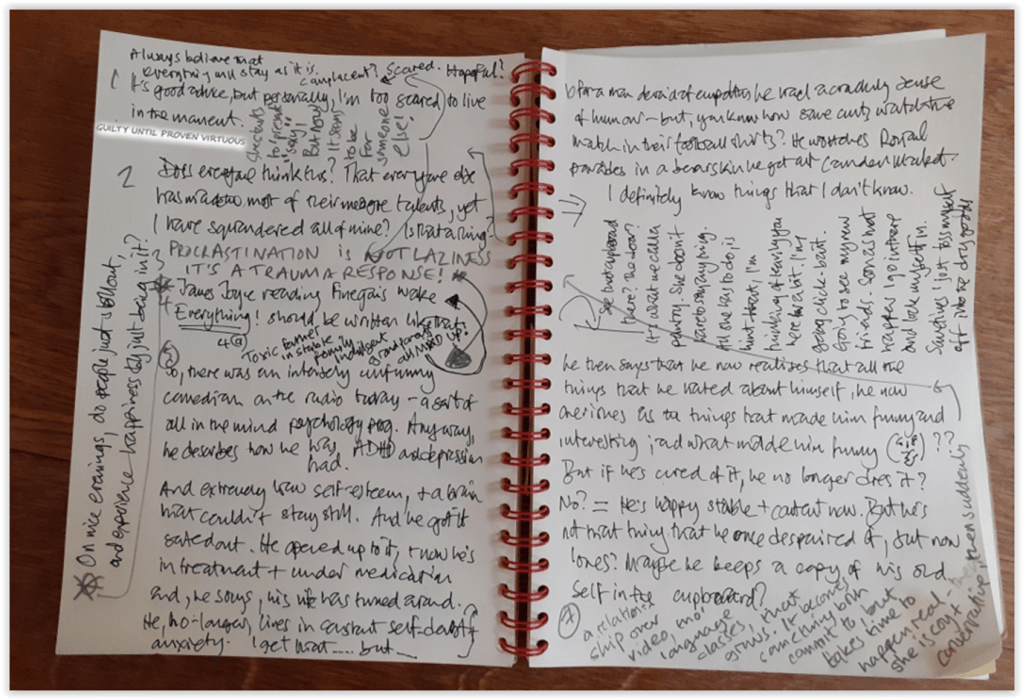 Always believe that
everything will stay as it is.
complacent? Scared. Hopeful?
1 It's good advice, but personally, I'm too scared to live
in the moment.
GUILTY UNTIL PROVEN VIRTUOUS
to present
"sexy"!
But now
it seems
to be
for
someone
else!
2 Does everyone think this? That everyone else
has made most of their meagre talents, yet
I have squandered all of mine? Is that a thing?
PROCRASTINATION is NOT LAZINESS
IT'S A TRAUMA RESPONSE!
James Joyce reading Finegans wake
Everything! should be written like that
4a
Toxic Farmer
in stable
family
indulgent
grandparents
all MIXED UP!
So, there was an intensely unfunny
comedian on the radio today – a sort of
all in the mind psychology prog. Anyway,
he describes how he was, ADHD and depression
had.
And extremely low self-esteem, + a brain
that couldn't stay still. And he got it
sorted out. He opened up to it, + now he's
in treatment + under medication
and, he says, his life has turned around.
He, no-longer, lives in constant self-doubt +
anxiety. I get that..... but—
On nice evenings, do people just sit out,
and experience happiness by just being in it?
for a man devoid of empathy he had a cruddy sense
of humour – but, you know how some cunts watch the
match in their football shirts? He watches Royal
parades in a bearskin he got at Camden Market.
I definitely know things that I don't know.
See that cupboard
there? The door?
It's what we call a
pantry. She doesn't
have to say anything.
All she has to do, is
hint that, I'm
thinking of leaving you
here for a bit. I'm
going click-bait.
Going to see my new
friends. Soon as that
happens I go in there
and lock myself in.
Sometimes I just toss myself
off into the dry goods
he then says that he now realises that all the
things that he hated about himself, he now
cherishes as the things that made him funny and
interesting; and what made him funny ??
But if he's cured of it, he no longer does it?
No? = He's happy stable + content now. But he's
not that thing that he once despaired of, but now
loves? Maybe he keeps a copy of his old
self in the cupboard?
a relation-
ship over
video, thro'
language
classes, that
grows. It becomes
something both
commit to, but
takes time to
happen real-
she is coy +
conversative!
then suddenly